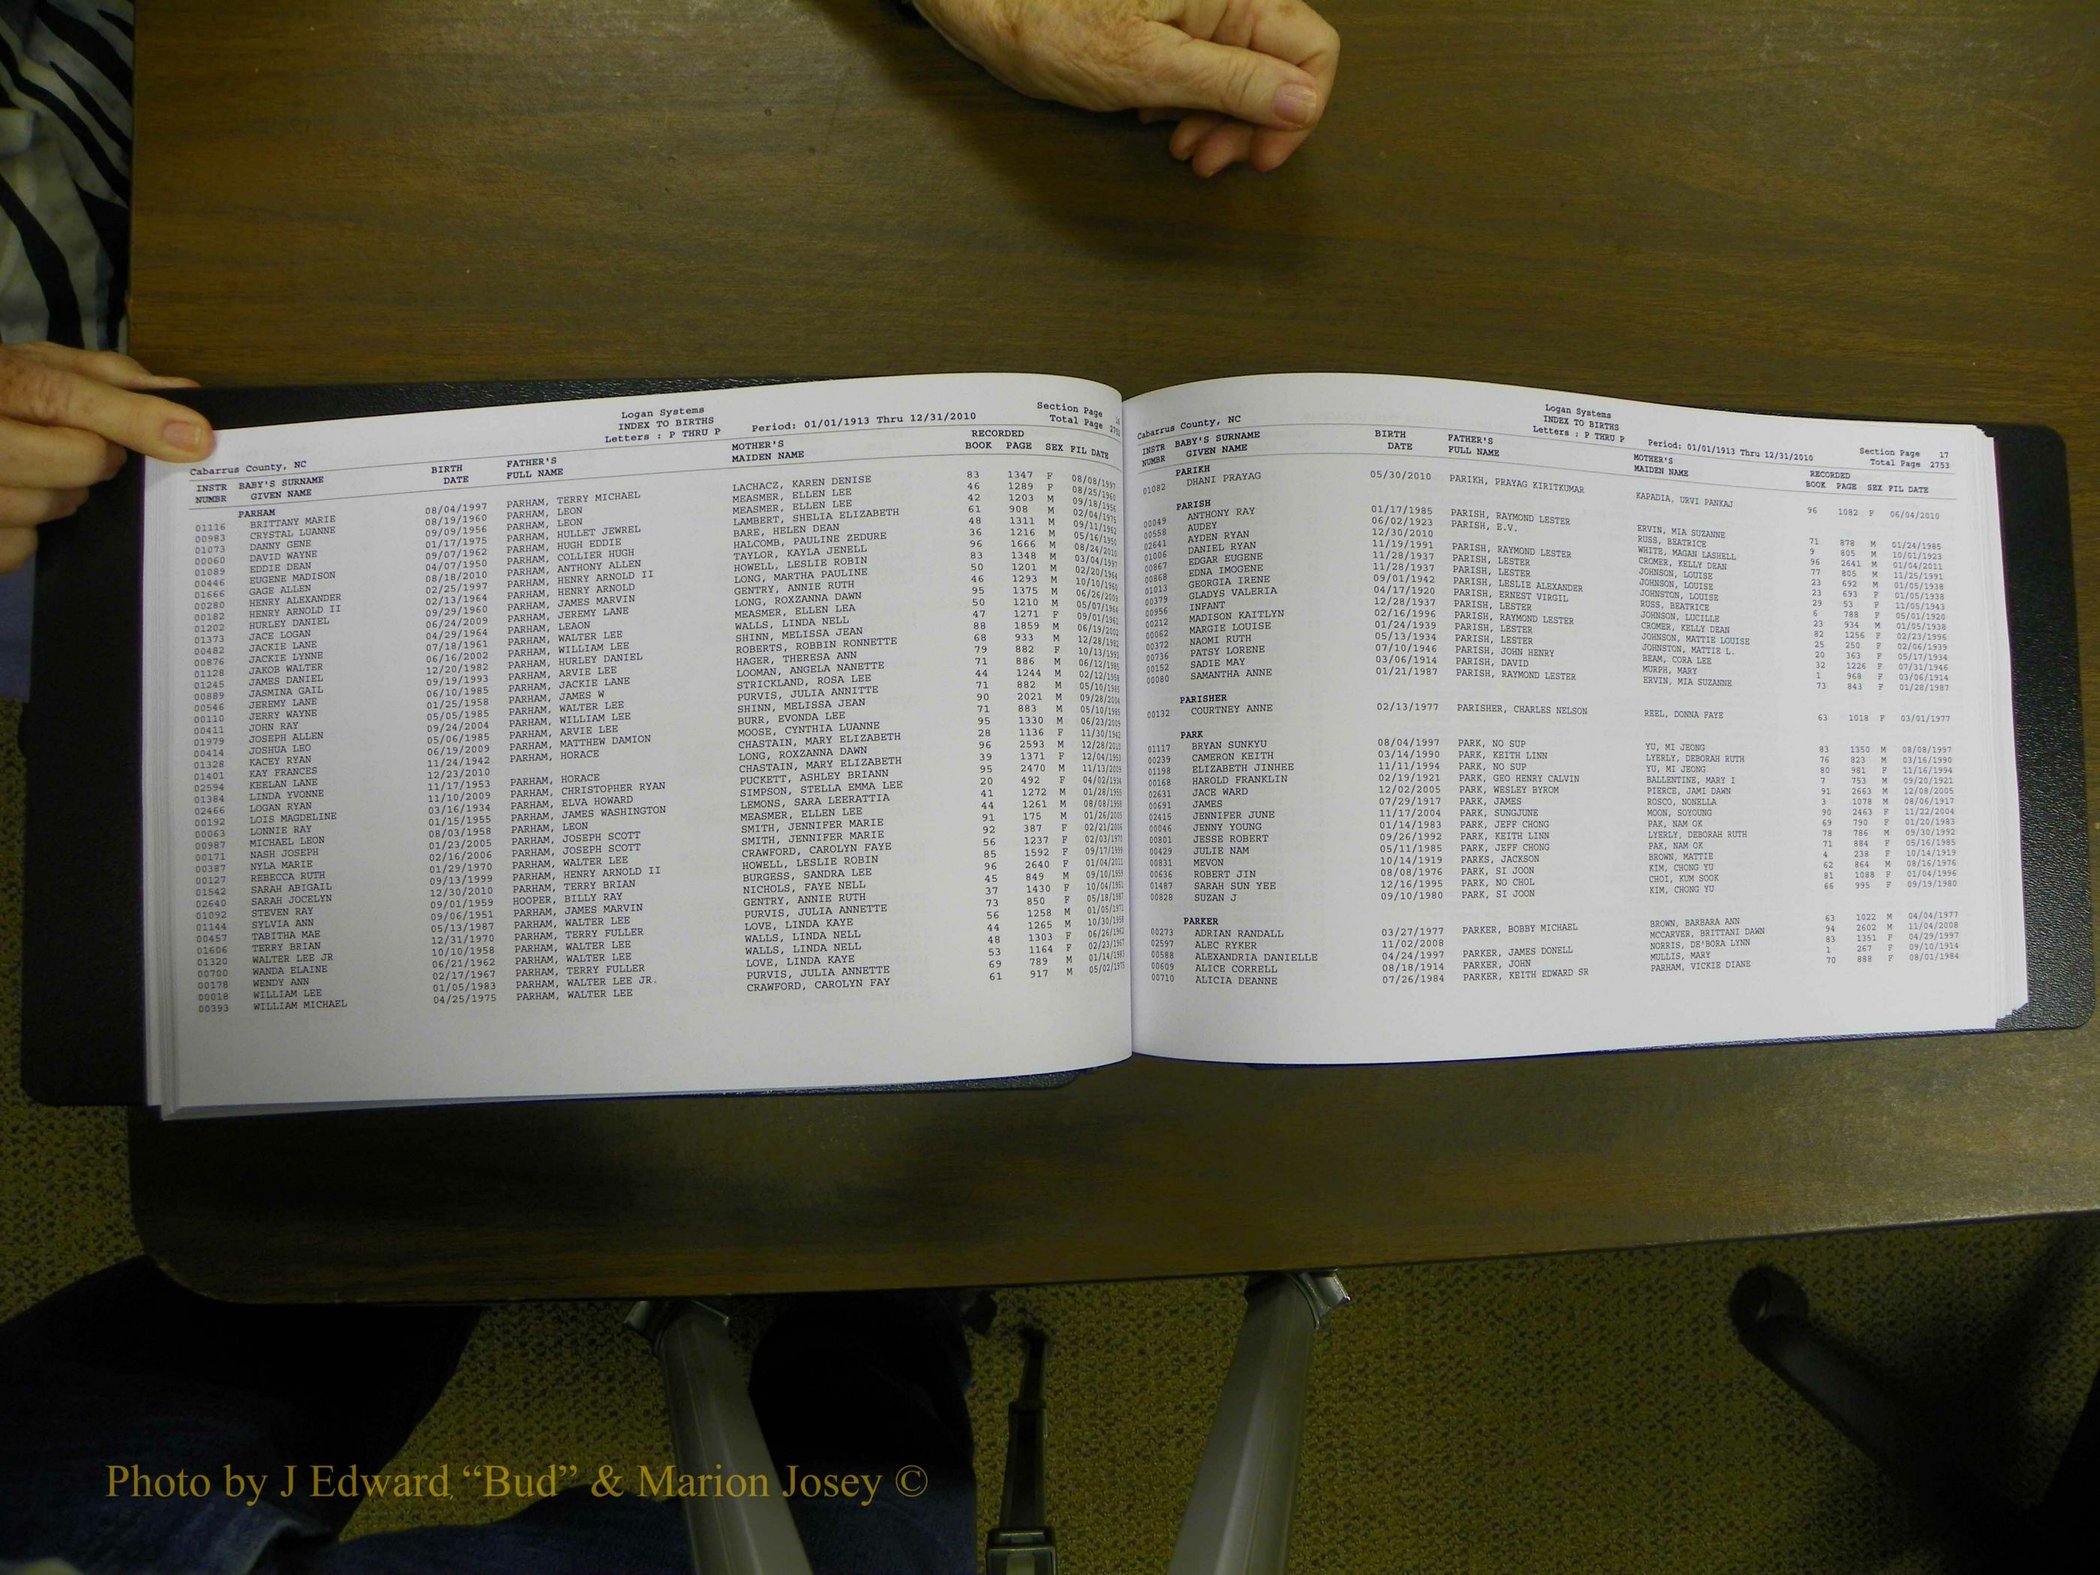 Logan Systems
INDEX TO BIRTHS
Letters : P THRU P
Period: 01/01/1913 Thru 12/31/2010
Section Page 16
Total Page
Cabarrus County, NC
INSTR BABY'S SURNAME BIRTH FATHER'S MOTHER'S RECORDED
NUMBR GIVEN NAME DATE FULL NAME MAIDEN NAME BOOK PAGE SEX FIL DATE
PARHAM
01116 BRITTANY MARIE 08/04/1997 PARHAM, TERRY MICHAEL LACHACZ, KAREN DENISE 83 1347 F 08/08/1997
00983 CRYSTAL LUANNE 08/19/1960 PARHAM, LEON MEASMER, ELLEN LEE 46 1289 F 08/25/1960
01073 DANNY GENE 09/09/1956 PARHAM, LEON MEASMER, ELLEN LEE 42 1203 M 09/18/1956
00060 DAVID WAYNE 01/17/1975 PARHAM, HULLET JEWREL LAMBERT, SHELIA ELIZABETH 61 908 M 02/04/1975
01089 EDDIE DEAN 09/07/1962 PARHAM, HUGH EDDIE BARE, HELEN DEAN 48 1311 M 09/11/1962
00446 EUGENE MADISON 04/07/1950 PARHAM, COLLIER HUGH HALCOMB, PAULINE ZEDURE 36 1216 M 05/16/1950
01666 GAGE ALLEN 08/18/2010 PARHAM, ANTHONY ALLEN TAYLOR, KAYLA JENELL 96 1666 M 08/24/2010
00280 HENRY ALEXANDER 02/25/1997 PARHAM, HENRY ARNOLD II HOWELL, LESLIE ROBIN 83 1348 M 03/04/1997
00182 HENRY ARNOLD II 02/13/1964 PARHAM, HENRY ARNOLD LONG, MARTHA PAULINE 50 1201 M 02/20/1964
01202 HURLEY DANIEL 09/29/1960 PARHAM, JAMES MARVIN GENTRY, ANNIE RUTH 46 1293 M 10/10/1960
01373 JACE LOGAN 06/24/2009 PARHAM, JEREMY LANE LONG, ROXZANNA DAWN 95 1375 M 06/26/2009
00482 JACKIE LANE 04/29/1964 PARHAM, LEAON MEASMER, ELLEN LEA 50 1210 M 05/07/1964
00876 JACKIE LYNNE 07/18/1961 PARHAM, WALTER LEE WALLS, LINDA NELL 47 1271 F 09/01/1961
01128 JAKOB WALTER 06/16/2002 PARHAM, WILLIAM LEE SHINN, MELISSA JEAN 88 1859 M 06/19/2002
01245 JAMES DANIEL 12/20/1982 PARHAM, HURLEY DANIEL ROBERTS, ROBBIN RONNETTE 68 933 M 12/28/1982
00889 JASMINA GAIL 09/19/1993 PARHAM, ARVIE LEE HAGER, THERESA ANN 79 882 F 10/13/1993
00546 JEREMY LANE 06/10/1985 PARHAM, JACKIE LANE LOOMAN, ANGELA NANETTE 71 886 M 06/12/1985
00110 JERRY WAYNE 01/25/1958 PARHAM, JAMES W STRICKLAND, ROSA LEE 44 1244 M 02/12/1958
00411 JOHN RAY 05/05/1985 PARHAM, WALTER LEE PURVIS, JULIA ANNITTE 71 882 M 05/10/1985
01979 JOSEPH ALLEN 09/24/2004 PARHAM, WILLIAM LEE SHINN, MELISSA JEAN 90 2021 M 09/28/2004
00414 JOSHUA LEO 05/06/1985 PARHAM, ARVIE LEE BURR, EVONDA LEE 71 883 M 05/10/1985
01328 KACEY RYAN 06/19/2009 PARHAM, MATTHEW DAMION MOOSE, CYNTHIA LUANNE 95 1330 M 06/23/2009
01401 KAY FRANCES 11/24/1942 PARHAM, HORACE CHASTAIN, MARY ELIZABETH 28 1136 F 11/30/1942
02594 KEELAN LANE 12/23/2010 LONG, ROXZANNA DAWN 96 2593 M 12/28/2010
01384 LINDA YVONNE 11/17/1953 PARHAM, HORACE CHASTAIN, MARY ELIZABETH 39 1371 F 12/04/1953
02466 LOGAN RYAN 11/10/2009 PARHAM, CHRISTOPHER RYAN PUCKETT, ASHLEY BRIANN 95 2470 M 11/13/2009
00192 LOIS MAGDELINE 03/16/1934 PARHAM, ELVA HOWARD SIMPSON, STELLA EMMA LEE 20 492 F 04/02/1934
00063 LONNIE RAY 01/15/1955 PARHAM, JAMES WASHINGTON LEMONS, SARA LEERATTIA 41 1272 M 01/28/1955
00987 MICHAEL LEON 08/03/1958 PARHAM, LEON MEASMER, ELLEN LEE 44 1261 M 08/08/1958
00171 NASH JOSEPH 01/23/2005 PARHAM, JOSEPH SCOTT SMITH, JENNIFER MARIE 91 175 M 01/26/2005
00387 NYLA MARIE 02/16/2006 PARHAM, JOSEPH SCOTT SMITH, JENNIFER MARIE 92 387 F 02/21/2006
00127 REBECCA RUTH 01/29/1970 PARHAM, WALTER LEE CRAWFORD, CAROLYN FAYE 56 1237 F 02/03/1970
01542 SARAH ABIGAIL 09/13/1999 PARHAM, HENRY ARNOLD II HOWELL, LESLIE ROBIN 85 1592 F 09/17/1999
02640 SARAH JOCELYN 12/30/2010 PARHAM, TERRY BRIAN BURGESS, SANDRA LEE 96 2640 F 01/04/2011
01092 STEVEN RAY 09/01/1959 HOOPER, BILLY RAY NICHOLS, FAYE NELL 45 849 M 09/10/1959
01144 SYLVIA ANN 09/06/1951 PARHAM, JAMES MARVIN GENTRY, ANNIE RUTH 37 1430 F 10/04/1951
00457 TABITHA MAE 05/13/1987 PARHAM, WALTER LEE PURVIS, JULIA ANNETTE 73 850 F 05/18/1987
01606 TERRY BRIAN 12/31/1970 PARHAM, TERRY FULLER LOVE, LINDA KAYE 56 1258 M 01/05/1971
01320 WALTER LEE JR 10/10/1958 PARHAM, WALTER LEE WALLS, LINDA NELL 44 1265 M 10/30/1958
00700 WANDA ELAINE 06/21/1962 PARHAM, WALTER LEE WALLS, LINDA NELL 48 1303 F 06/26/1962
00178 WENDY ANN 02/17/1967 PARHAM, TERRY FULLER LOVE, LINDA KAYE 53 1164 F 02/23/1967
00018 WILLIAM LEE 01/05/1983 PARHAM, WALTER LEE JR. PURVIS, JULIA ANNETTE 69 789 M 01/14/1983
00393 WILLIAM MICHAEL 04/25/1975 PARHAM, WALTER LEE CRAWFORD, CAROLYN FAY 61 917 M 05/02/1975
Logan Systems
INDEX TO BIRTHS
Letters : P THRU P
Period: 01/01/1913 Thru 12/31/2010
Section Page 17
Total Page 2753
Cabarrus County, NC
INSTR BABY'S SURNAME BIRTH FATHER'S MOTHER'S RECORDED
NUMBR GIVEN NAME DATE FULL NAME MAIDEN NAME BOOK PAGE SEX FIL DATE
PARIKH
01082 DHANI PRAYAG 05/30/2010 PARIKH, PRAYAG KIRITKUMAR KAPADIA, URVI PANKAJ 96 1082 F 06/04/2010
PARISH
00049 ANTHONY RAY 01/17/1985 PARISH, RAYMOND LESTER ERVIN, MIA SUZANNE 71 878 M 01/24/1985
00558 AUDEY 06/02/1923 PARISH, E.V. RUSS, BEATRICE 9 805 M 10/01/1923
02641 AYDEN RYAN 12/30/2010 WHITE, MAGAN LASHELL 96 2641 M 01/04/2011
01006 DANIEL RYAN 11/19/1991 PARISH, RAYMOND LESTER CROMER, KELLY DEAN 77 805 M 11/25/1991
00867 EDGAR EUGENE 11/28/1937 PARISH, LESTER JOHNSON, LOUISE 23 692 M 01/05/1938
00868 EDNA IMOGENE 11/28/1937 PARISH, LESTER JOHNSON, LOUISE 23 693 F 01/05/1938
01013 GEORGIA IRENE 09/01/1942 PARISH, LESLIE ALEXANDER JOHNSTON, LOUISE 29 53 F 11/05/1943
00379 GLADYS VALERIA 04/17/1920 PARISH, ERNEST VIRGIL RUSS, BEATRICE 6 788 F 05/01/1920
00956 INFANT 12/28/1937 PARISH, LESTER JOHNSON, LUCILLE 23 934 M 01/05/1938
00212 MADISON KAITLYN 02/16/1996 PARISH, RAYMOND LESTER CROMER, KELLY DEAN 82 1256 F 02/23/1996
00062 MARGIE LOUISE 01/24/1939 PARISH, LESTER JOHNSON, MATTIE LOUISE 25 250 F 02/06/1939
00372 NAOMI RUTH 05/13/1934 PARISH, LESTER JOHNSTON, MATTIE L. 20 363 F 05/17/1934
00736 PATSY LORENE 07/10/1946 PARISH, JOHN HENRY BEAM, CORA LEE 32 1226 F 07/31/1946
00152 SADIE MAY 03/06/1914 PARISH, DAVID MURPH, MARY 1 968 F 03/06/1914
00080 SAMANTHA ANNE 01/21/1987 PARISH, RAYMOND LESTER ERVIN, MIA SUZANNE 73 843 F 01/28/1987
PARISHER
00132 COURTNEY ANNE 02/13/1977 PARISHER, CHARLES NELSON REEL, DONNA FAYE 63 1018 F 03/01/1977
PARK
01117 BRYAN SUNKYU 08/04/1997 PARK, NO SUP YU, MI JEONG 83 1350 M 08/08/1997
00239 CAMERON KEITH 03/14/1990 PARK, KEITH LINN LYERLY, DEBORAH RUTH 76 823 M 03/16/1990
01198 ELIZABETH JINHEE 11/11/1994 PARK, NO SUP YU, MI JEONG 80 981 F 11/16/1994
00168 HAROLD FRANKLIN 02/19/1921 PARK, GEO HENRY CALVIN BALLENTINE, MARY I 7 753 M 09/20/1921
02631 JACE WARD 12/02/2005 PARK, WESLEY BYROM PIERCE, JAMI DAWN 91 2663 M 12/08/2005
00691 JAMES 07/29/1917 PARK, JAMES ROSCO, NONELLA 3 1078 M 08/06/1917
02415 JENNIFER JUNE 11/17/2004 PARK, SUNGJUNE MOON, SOYOUNG 90 2463 F 11/22/2004
00046 JENNY YOUNG 01/14/1983 PARK, JEFF CHONG PAK, NAM OK 69 790 F 01/20/1983
00801 JESSE ROBERT 09/26/1992 PARK, KEITH LINN LYERLY, DEBORAH RUTH 78 786 M 09/30/1992
00429 JULIE NAM 05/11/1985 PARK, JEFF CHONG PAK, NAM OK 71 884 F 05/16/1985
00831 MEVON 10/14/1919 PARKS, JACKSON BROWN, MATTIE 4 238 F 10/14/1919
00636 ROBERT JIN 08/08/1976 PARK, SI JOON KIM, CHONG YU 62 864 M 08/16/1976
01487 SARAH SUN YEE 12/16/1995 PARK, NO CHOL CHOI, KUM SOOK 81 1088 F 01/04/1996
00828 SUZAN J 09/10/1980 PARK, SI JOON KIM, CHONG YU 66 995 F 09/19/1980
PARKER
00273 ADRIAN RANDALL 03/27/1977 PARKER, BOBBY MICHAEL BROWN, BARBARA ANN 63 1022 M 04/04/1977
02597 ALEC RYKER 11/02/2008 MCCARVER, BRITTANI DAWN 94 2602 M 11/04/2008
00588 ALEXANDRIA DANIELLE 04/24/1997 PARKER, JAMES DONELL NORRIS, DE'BORA LYNN 83 1351 F 04/29/1997
00609 ALICE CORRELL 08/18/1914 PARKER, JOHN MULLIS, MARY 1 267 F 09/10/1914
00710 ALICIA DEANNE 07/26/1984 PARKER, KEITH EDWARD SR PARHAM, VICKIE DIANE 70 888 F 08/01/1984
Photo by J Edward “Bud” & Marion Josey ©